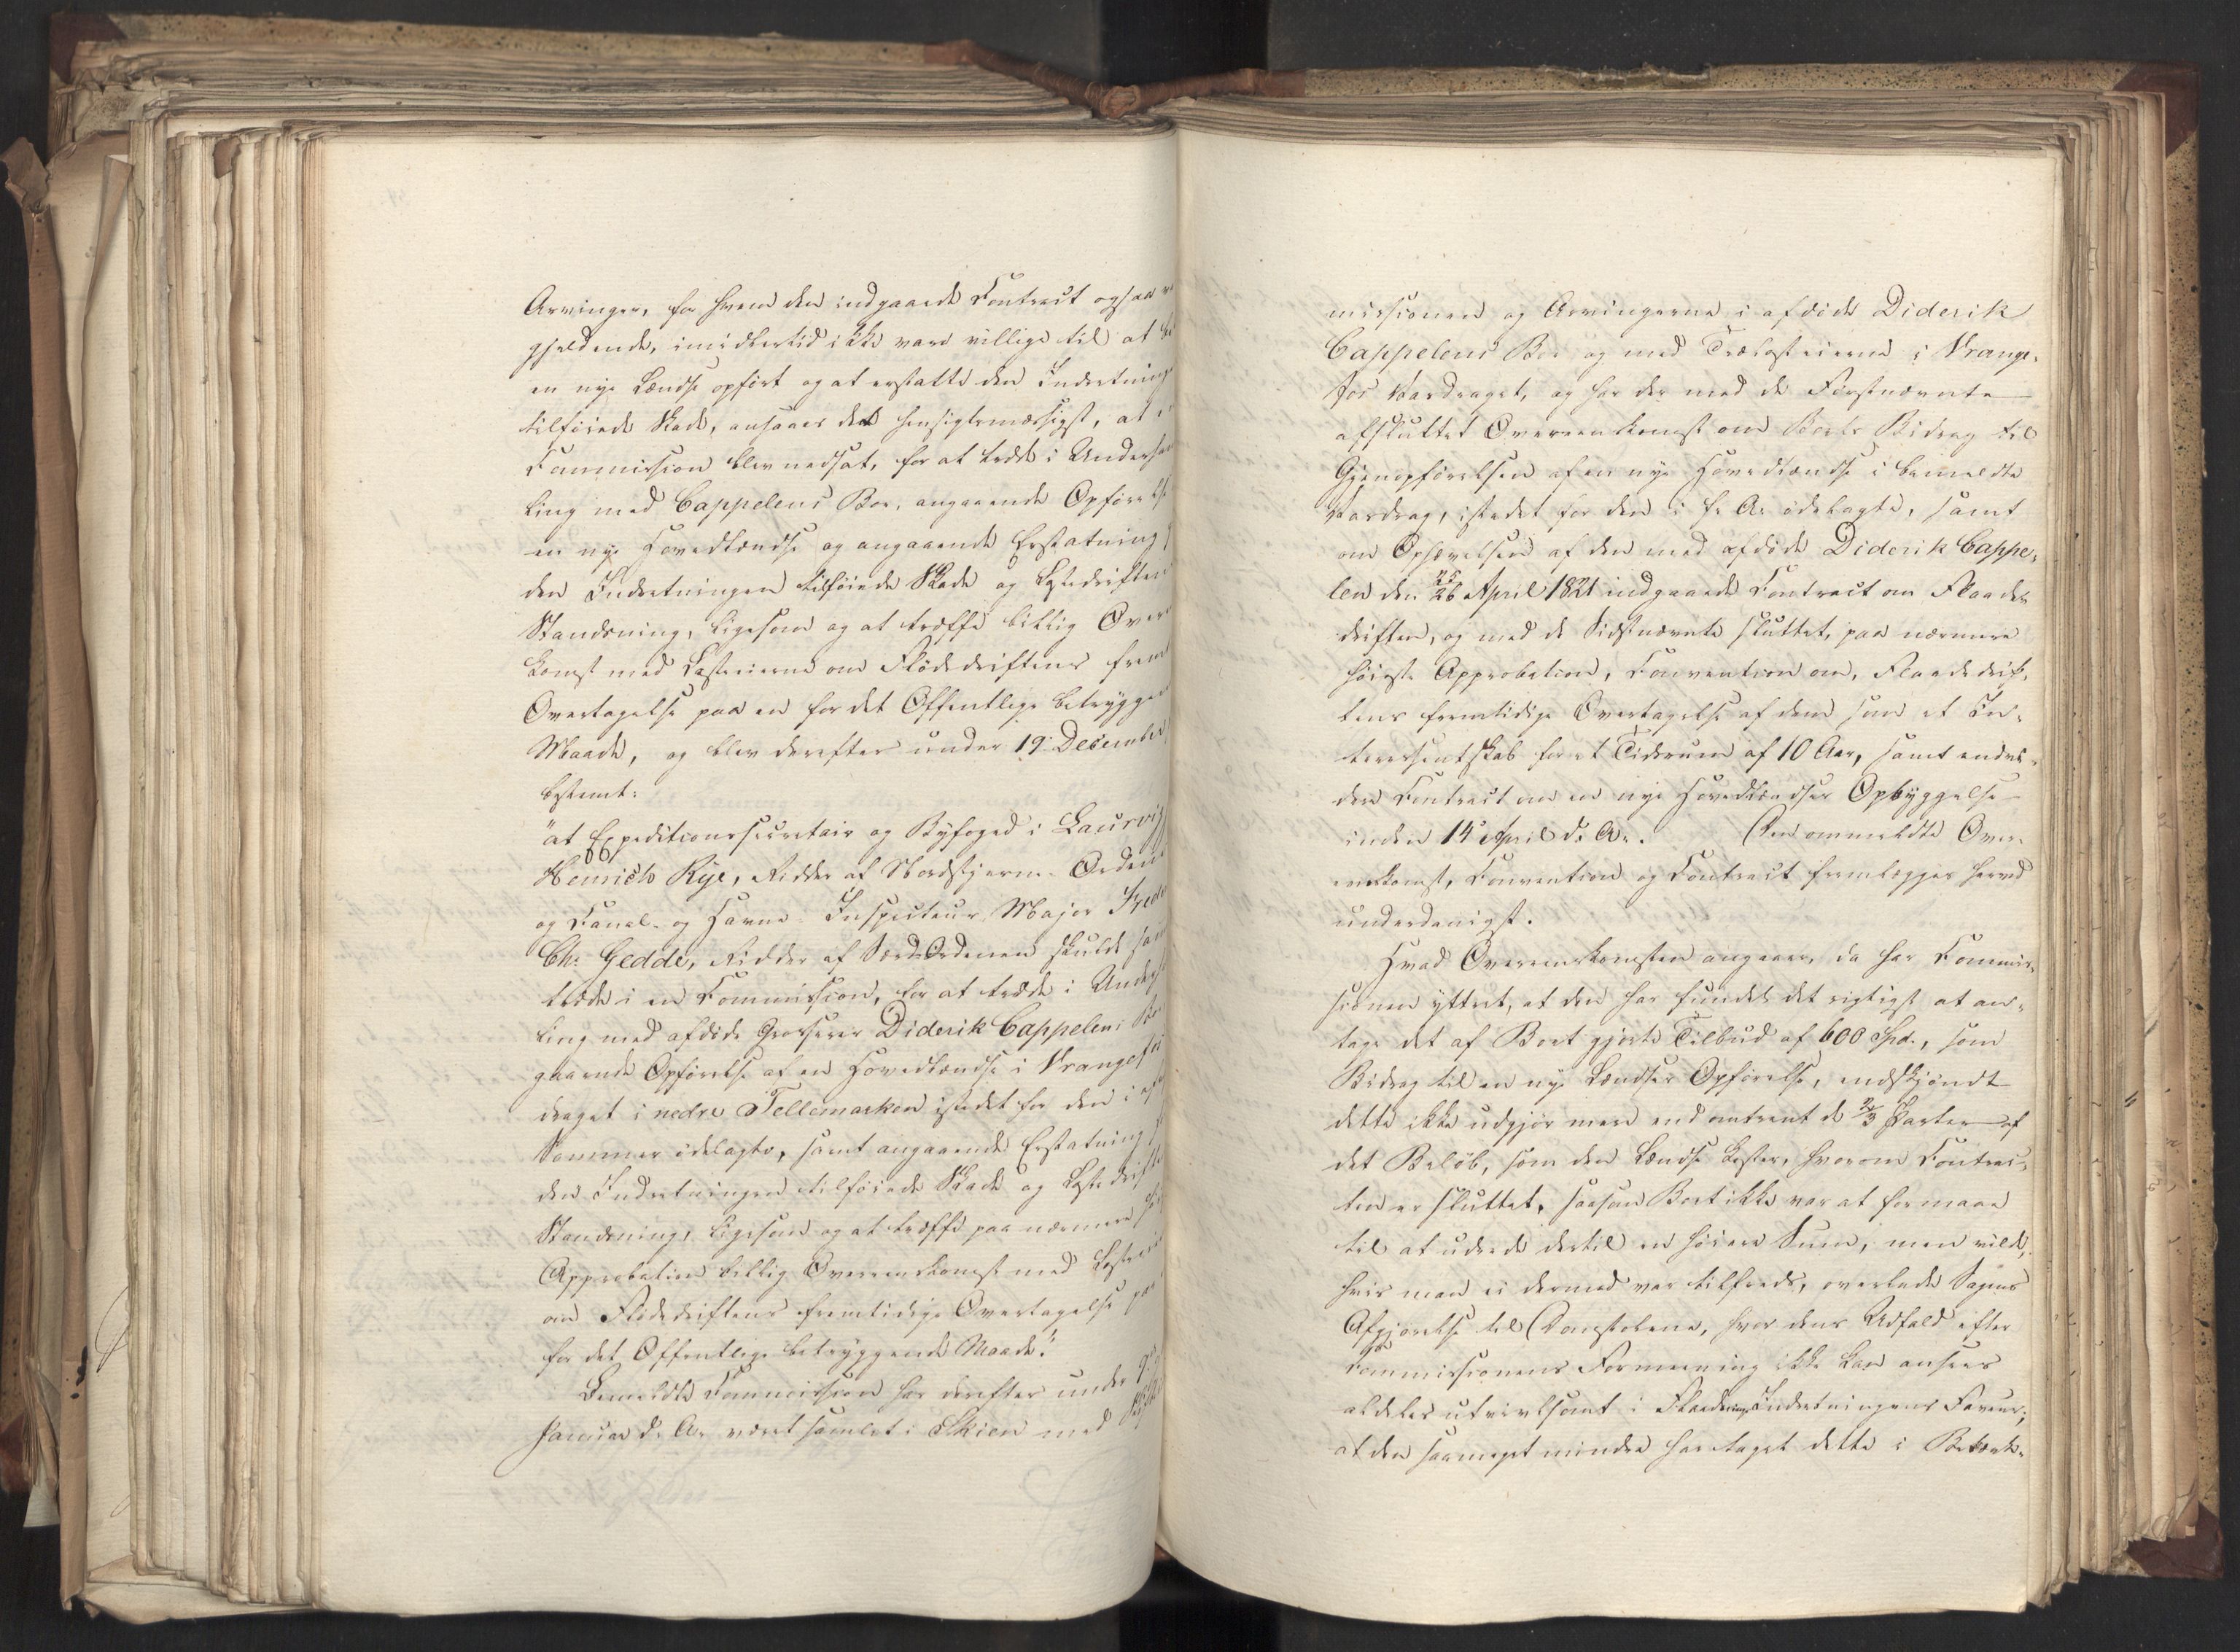 Arvinger, for hvem den indgaaede Contract ogsaa
gjeldende, imidlertid ikke vare villige til at
en nye Lændse opført og at erstatte den Indretninge
tilføiede Skade, ansaaes det hensigtsmæssigst, at
Commission blev nedsat, for at træde i Underhand
ling med Cappelens Boe, angaaende Opførelse
en nye Hovedlændse og angaaende Erstatning
den Indretningen tilføiede Skade og Lastedriftens
Standsning, ligesom og at træffe billig Overe
komst med Lasteierne om Flødedriftens frem
Overtagelse paa en for det Offentlige betryggen
Maade, og blev derefter under 19 December
bestemt:
"at Expeditionssecretair og Byfoged i Laurvig
Henrich Rye, Ridder af Nordstjerne-Ordenen
og Canal- og Havne-Inspecteur, Major Frede
Chr. Gedde, Ridder af Sværd-Ordenen skulde sam
træde i en Commission, for at træde i Underh
ling med afdøde Grosserer Diderik Cappelens Bo
gaaende Opførelse af en Hovedlændse i Vrangfos
draget i nedre Tellemarken istedet for den i
Sommer ødelagte, samt angaaende Erstatning
den Indretningen tilføiede Skade og Lastedrifte
Standsning, ligesom og at træffe paa nærmere
Approbation billig Overeenskomst med Lasteei
om Flødedriftens fremtidige Overtagelse paa
for det Offentlige betryggende Maade."
Bemeldte Commission har derefter under
Januar d. A. været samlet i Skien med
missionen og Arvingerne i afdøde Diderik
Cappelens Boe og med Trælasteierne i Vrang-
fos Vasdraget, og har der med de Førstnævnte
afsluttet Overeenskomst om Boets Bidrag til
Gjenopførelsen af en nye Hovedlændse i bemeldte
Vasdrag, istedet for den i f. A. ødelagte, samt
om Ophævelsen af den med afdøde Diderik Cappe-
len den 25/26 April 1821 indgaaede Contract om Flaade-
driften, og med de Sidstnævnte sluttet, paa nærmere
høieste Approbation, Convention om, Flaadedrif-
tens fremtidige Overtagelse af dem som et In-
teressentskab for et Tidsrum af 10 Aar, samt ende-
den Contract om en nye Hovedlændses Opbyggelse
inden 14 April d. A. Den ommeldte Over-
eenskomst, Convention og Contract fremlægges herved
underdanigst.
Hvad Overeenskomsten angaaer, da har Commis-
sionen yttret, at den har fundet det rigtigst at an-
tage det af Boet gjorte Tilbud af 600 Spd., som
Bidrag til en nye Lændses Opførelse, endskjøndt
dette ikke udgjør mere end omtrent de 2/3 Parter af
det Beløb, som den Lændse koster, hvorom Contrac-
ten er sluttet, saasom Boet ikke var at formaae
til at udrede dertil en høiere Sum, men vilde,
hvis man ei dermed var tilfreds, overlade Sagens
Afgjørelse til Domstolene, hvor dens Udfald efter
Commissionens Formeening ikke kan ansees
aldeles utvivlsomt i Flaadnings Indretningens Faveur;
at den saameget mindre har taget dette i Betænk-